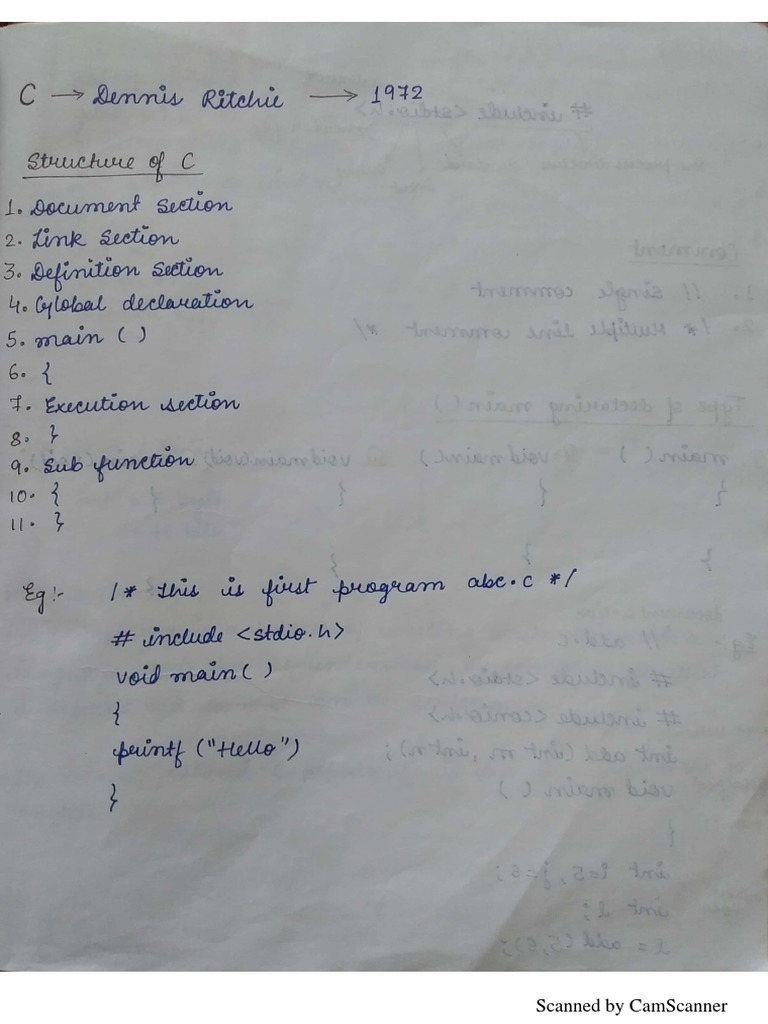 C → Dennis Ritchie → 1972
Structure of C
1. Document Section
2. Link Section
3. Definition Section
4. Global declaration
5. main ( )
6. {
7. Execution section
8. }
9. Sub function
10. {
11. }
Eg :- /* This is first program abc.c */
# include <stdio.h>
void main ( )
{
printf ("Hello")
}
Scanned by CamScanner